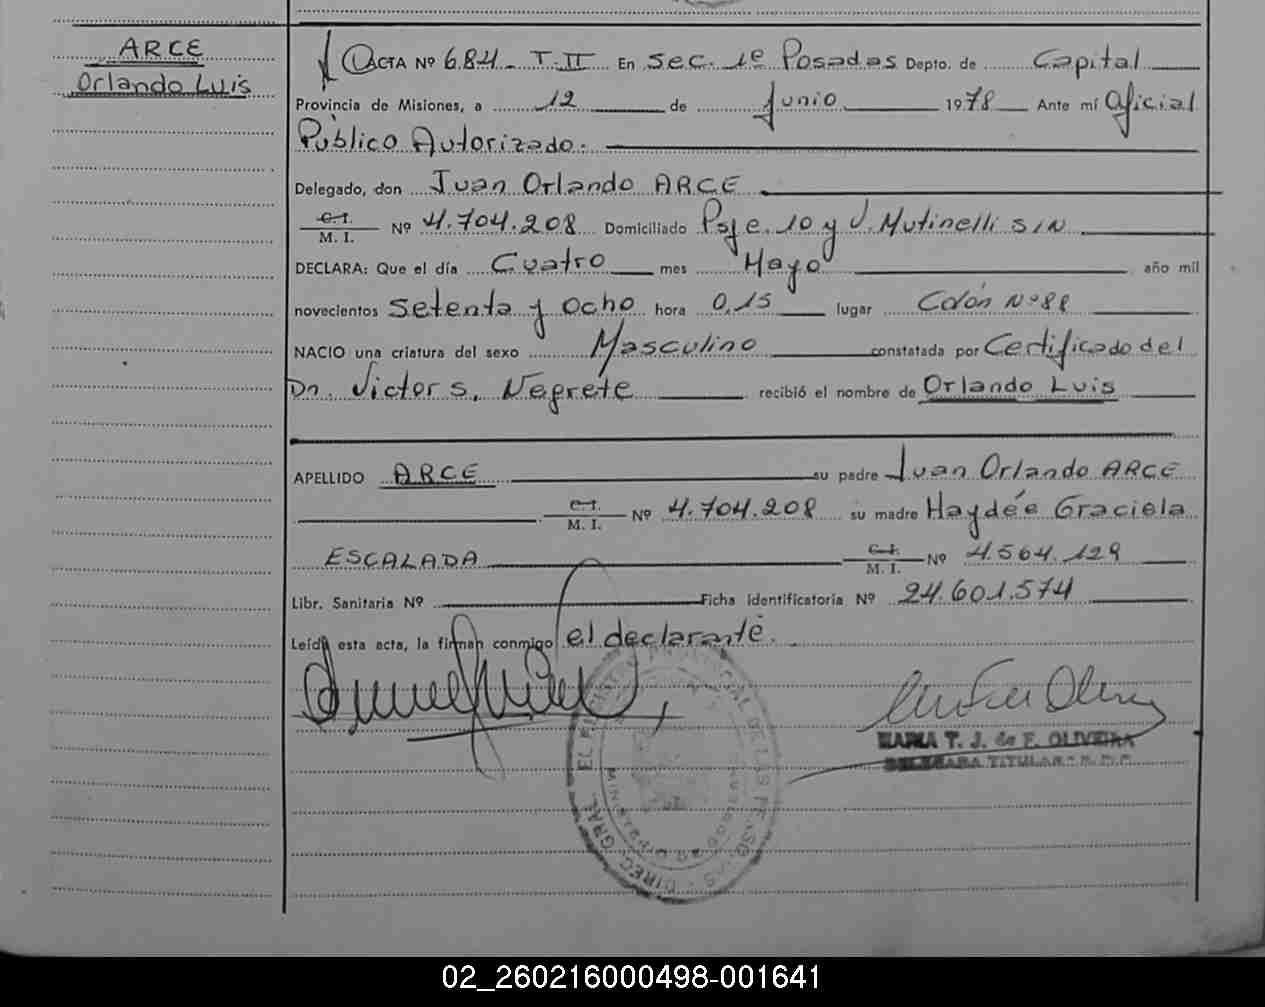 ARCE
Orlando Luis
ACTA Nº 684 - T. II En Sec. 1º Posadas Depto. de Capital
Provincia de Misiones, a 12 de Junio 1978 Ante mí Oficial
Público Autorizado.
Delegado, don Juan Orlando ARCE
C. I. / M. I. Nº 4.704.208 Domiciliado Psje. 10 y J. Mutinelli S/N
DECLARA: Que el día Cuatro mes Mayo año mil
novecientos Setenta y Ocho hora 0,15 lugar Colón Nº 88
NACIO una criatura del sexo Masculino constatada por Certificado del
Dr. Victor S. Negrete recibió el nombre de Orlando Luis
APELLIDO ARCE su padre Juan Orlando ARCE
C. I. / M. I. Nº 4.704.208 su madre Haydée Graciela
ESCALADA C. I. / M. I. Nº 4.564.129
Libr. Sanitaria Nº Ficha identificatoria Nº 24.601.574
Leída esta acta, la firman conmigo el declarante.
MARIA T. J. de F. OLIVEIRA
DELEGADA TITULAR
02_260216000498-001641